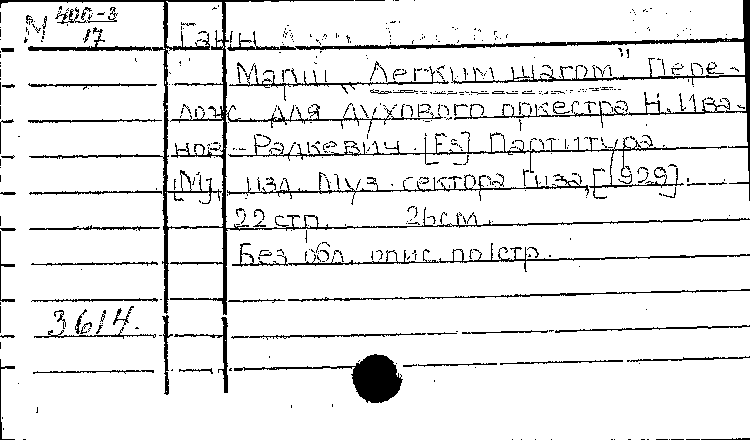 М 400-3
17
Ганн
Марш „Легким шагом" Пере-
лож. для духового оркестра Н. Ива-
нов-Радкевич. [Es] Партитура.
[М], изд. Муз. сектора Гиза, [1929].
22 стр. 26 см.
Без обл. опис. по 1 стр.
3614.